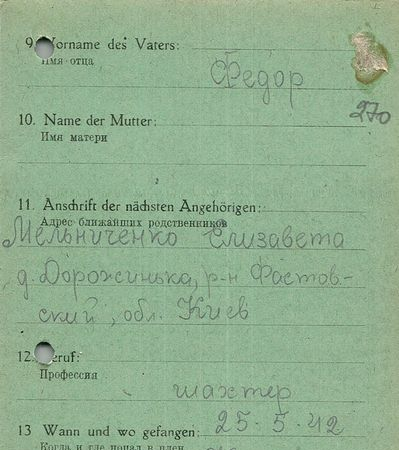 9. Vorname des Vaters:
Имя отца
Федор
270
10. Name der Mutter:
Имя матери
11. Anschrift der nächsten Angehörigen:
Адрес ближайших родственников
Мельниченко Елизавета
д. Дорожинька, р-н Фастов-
ский, обл. Киев
12. Beruf:
Профессия
шахтер
13 Wann und wo gefangen: 25.5.42
Когда и где попал в плен